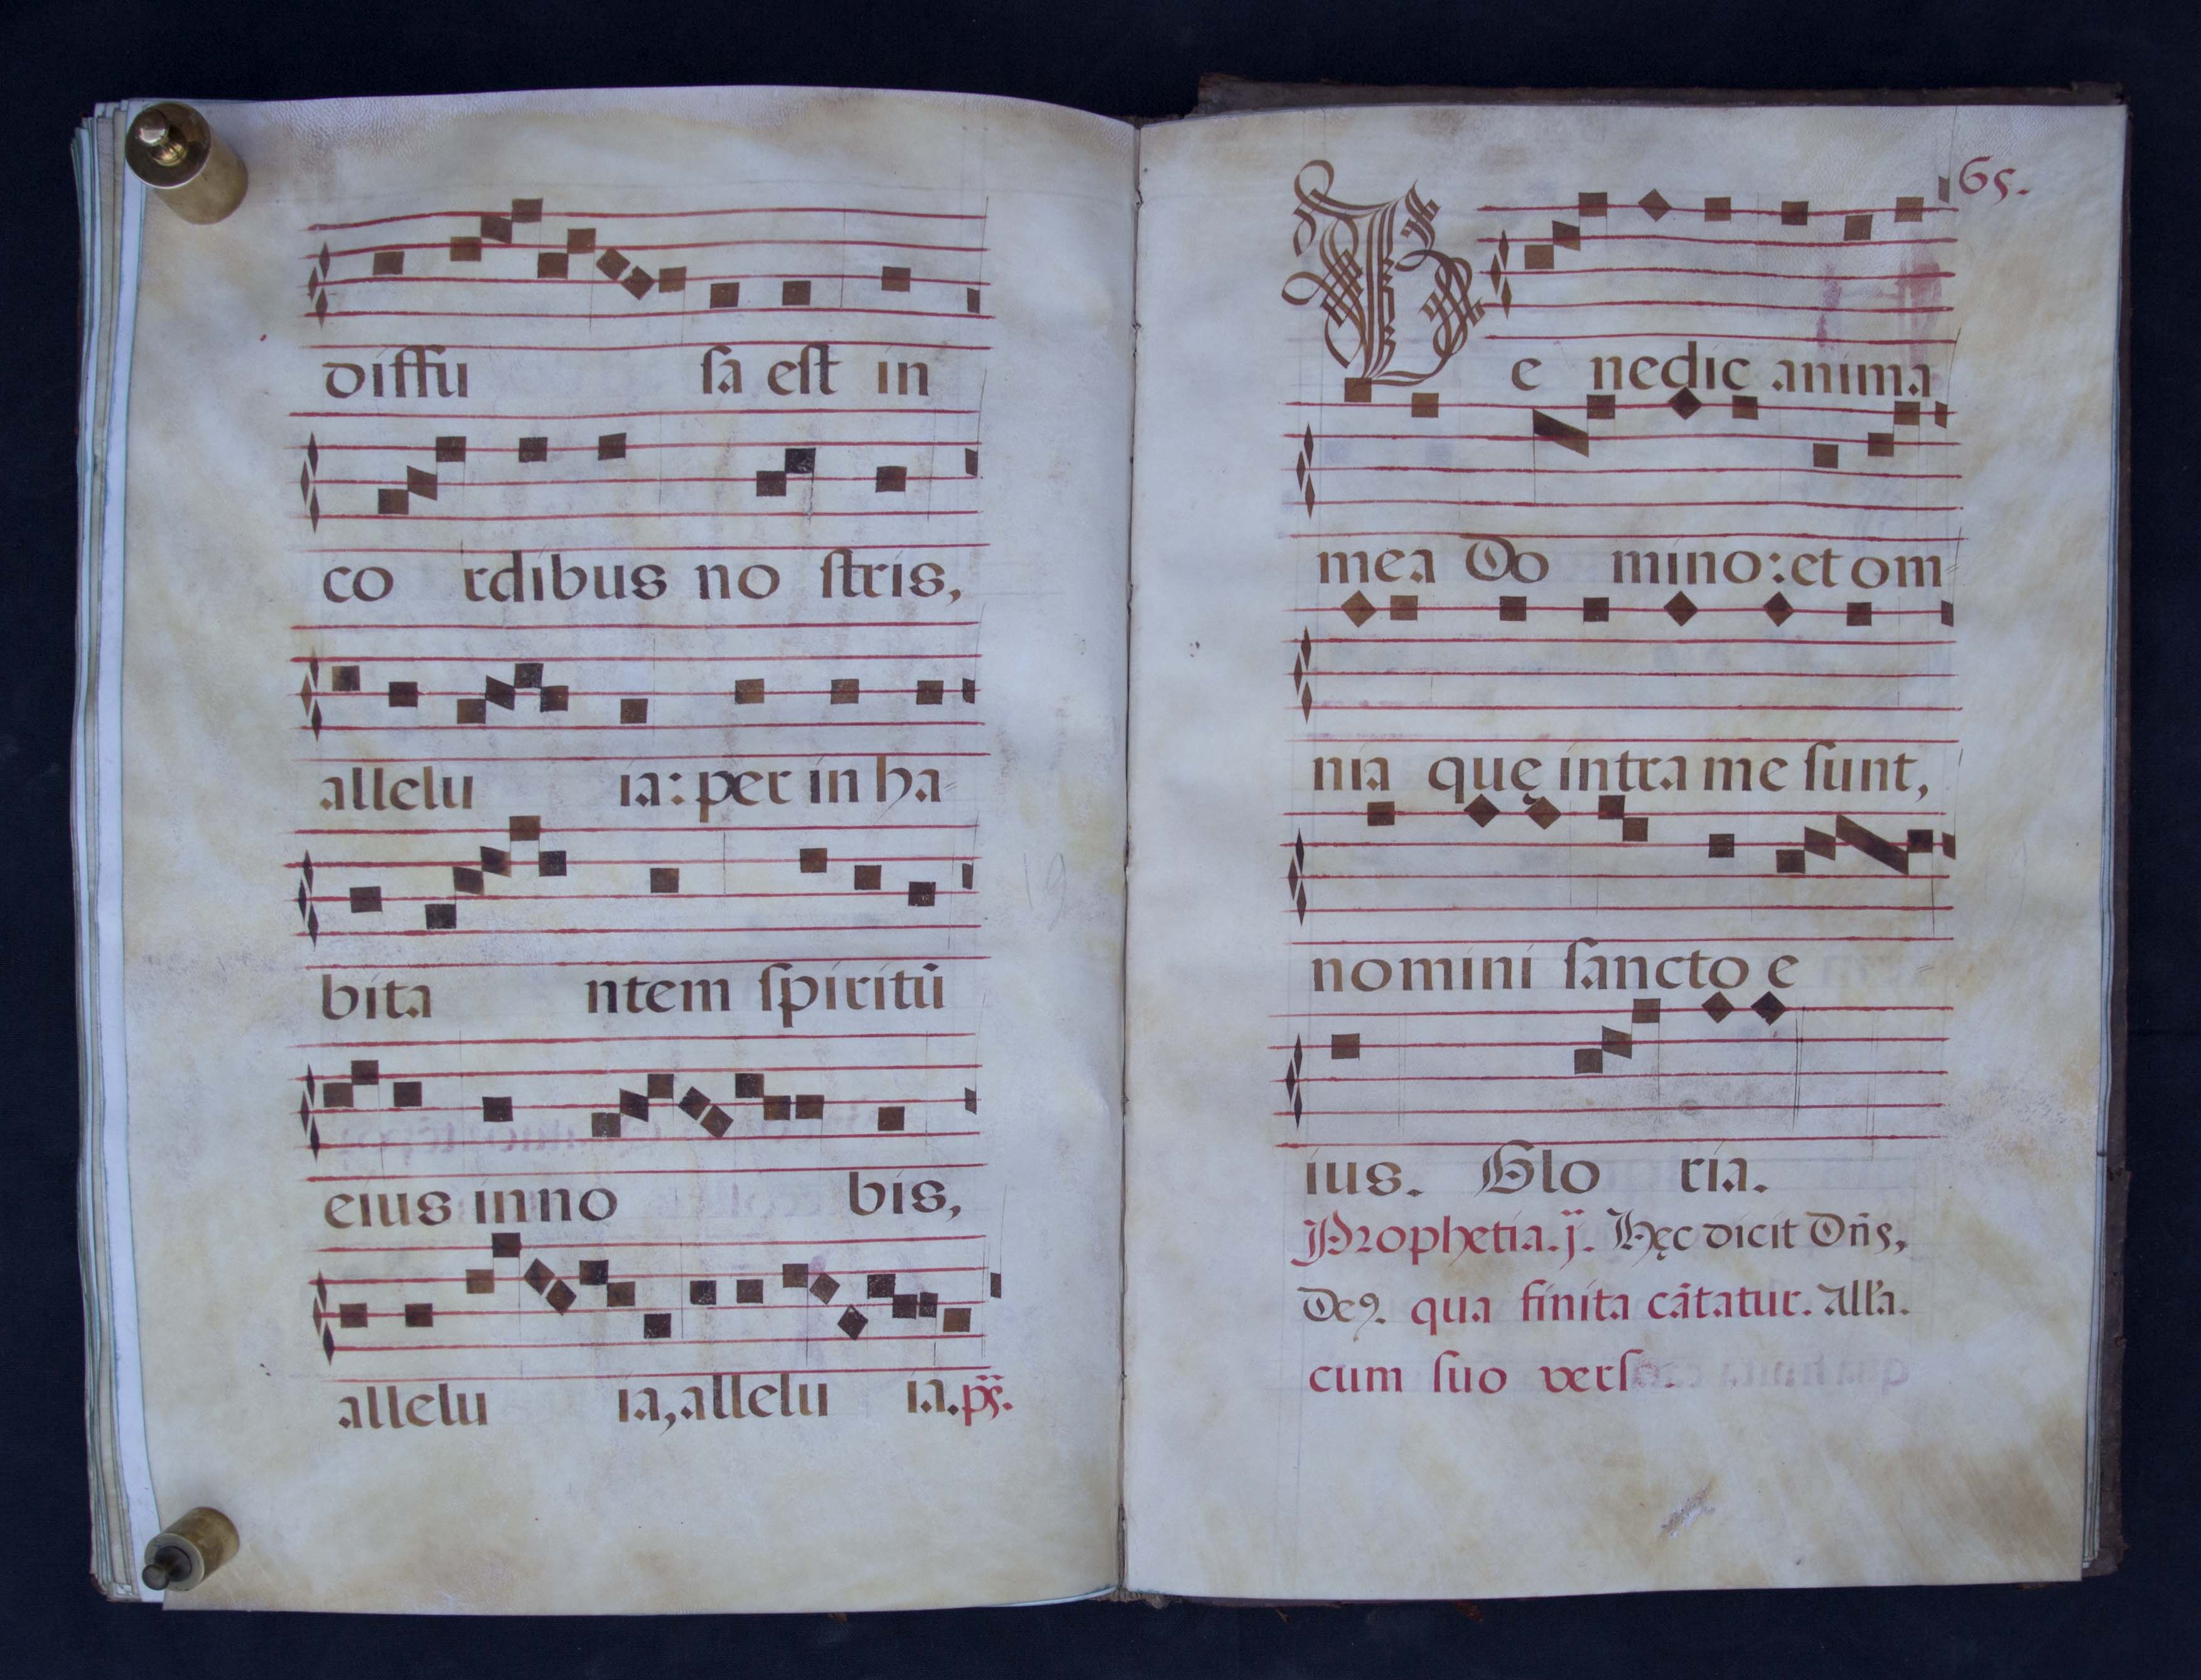 diffu sa est in
co rdibus no stris,
allelu ia: per in ha-
bita ntem spiritū
eius in no bis,
allelu ia, allelu ia. ps̄.
65.
Be nedic anima
mea Do mino: et om-
nia quę intra me sunt,
nomini sancto e
ius. Glo ria.
Prophetia. j. Hęc dicit Dñs,
De⁹. qua finita cātatur. All'a.
cum suo vers